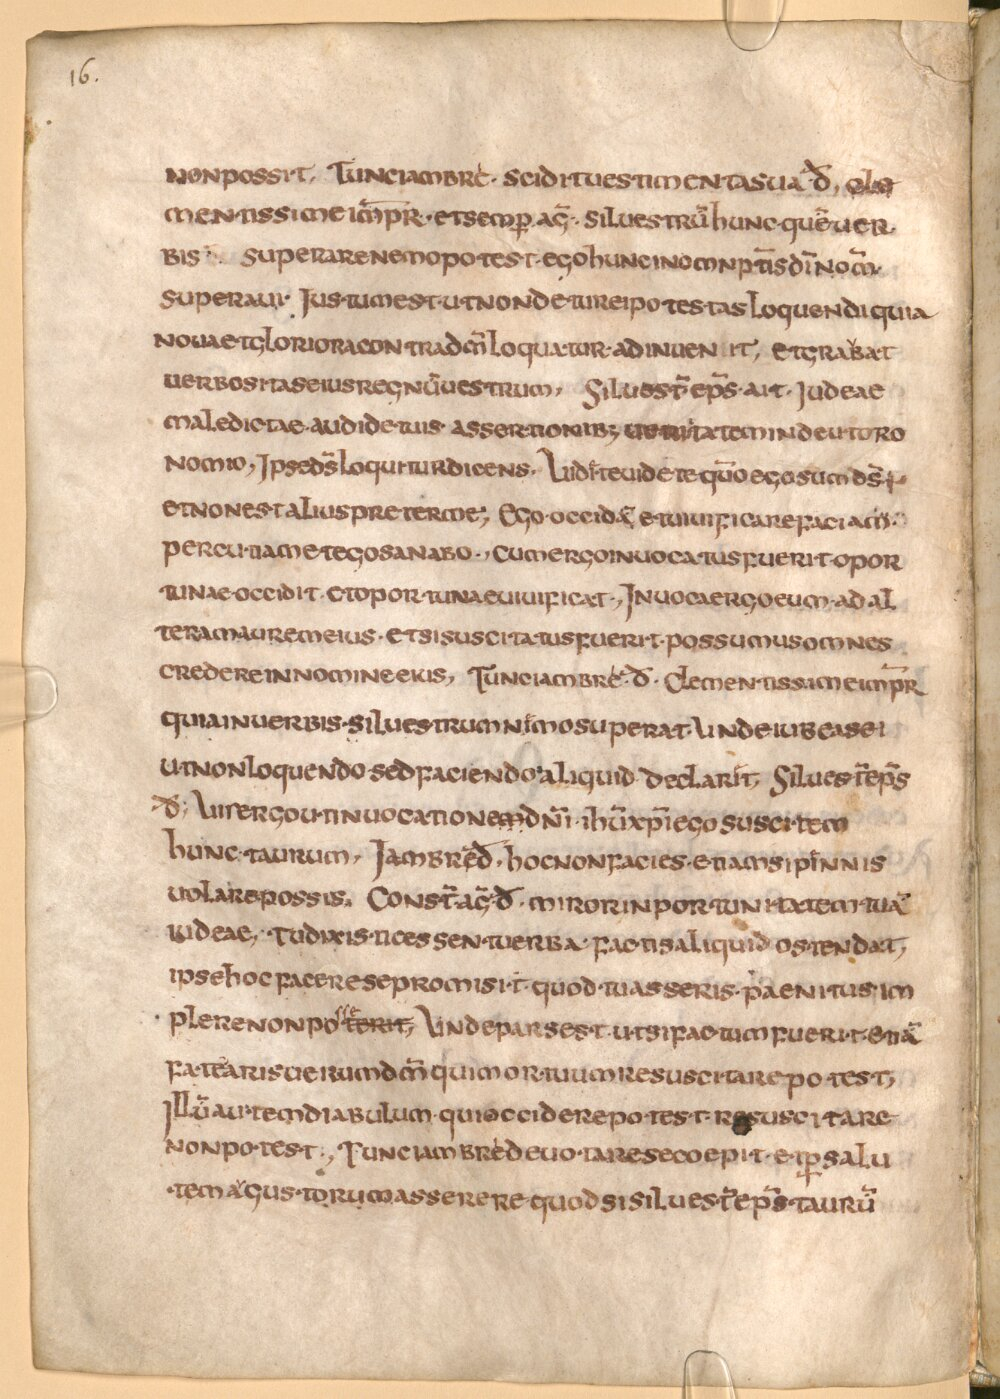 16.
nonpossit, Tunciambre· sciditvestimentasua đ, cle
mentissime imp̄r· et semp̱ ag̃· silvestrũ hunc· quẽ ver
bis superare nemo potest· ego hunc in omnp̄tis dĩ nom̃
superavi· Justum est· ut non detur ei potestas loquendi quia
nova et gloriora contra dm̃ loquatur· ad invenit, et grabat
verbositas eius regnũ vestrum, Silvest̃ ep̃s· ait· Judeae
maledictae audi de tuis assertionib; veritatem in deutoro
nomio, Ipse ds̃ loquitur dicens, Vidite videte qm̃ ego sum ds̃
et non est alius preter me; Ego occidã et vivificare faciam·
percutiam et ego sanabo·, cum ergo invocatus fuerit· opor
tunae· occidit et oportunae vivificat·, Invoca ergo eum· ad al
teram aurem eius· et si suscitatus fuerit· possumus omnes
credere in nomine eius, Tunc iambre đ· Clementissime imp̃r
quia in verbis· silvestrum nimo superat· Unde iubeas ei
ut non loquendo· sed faciendo aliquid declarit, Silvest̃ ep̃s
đ; Vis ergo ut invocationem dñi· ihũ xpĩ ego suscitem
hunc· taurum, Jambre đ, hoc non facies· etiam si pinnis
volare possis, Const̃ ag̃ đ· miror inportunitatem tuã
iudeae, tu dixisti cessent verba· factis aliquid ostendat,
ipse hoc facere se promisit· quod tu asseris· paenitus im
plere non poterit, Unde pars est· ut si factum fuerit· etiã
fatearis verum dm̃ qui mortuum resuscitare potest,
Illũ autem diabulum· qui occidere potest· resuscitare
non potest·, Tunc iambre devotare se coepit· et p̱ salu
tem agustorum asserere· quod si silvest̃ ep̃s· taurũ